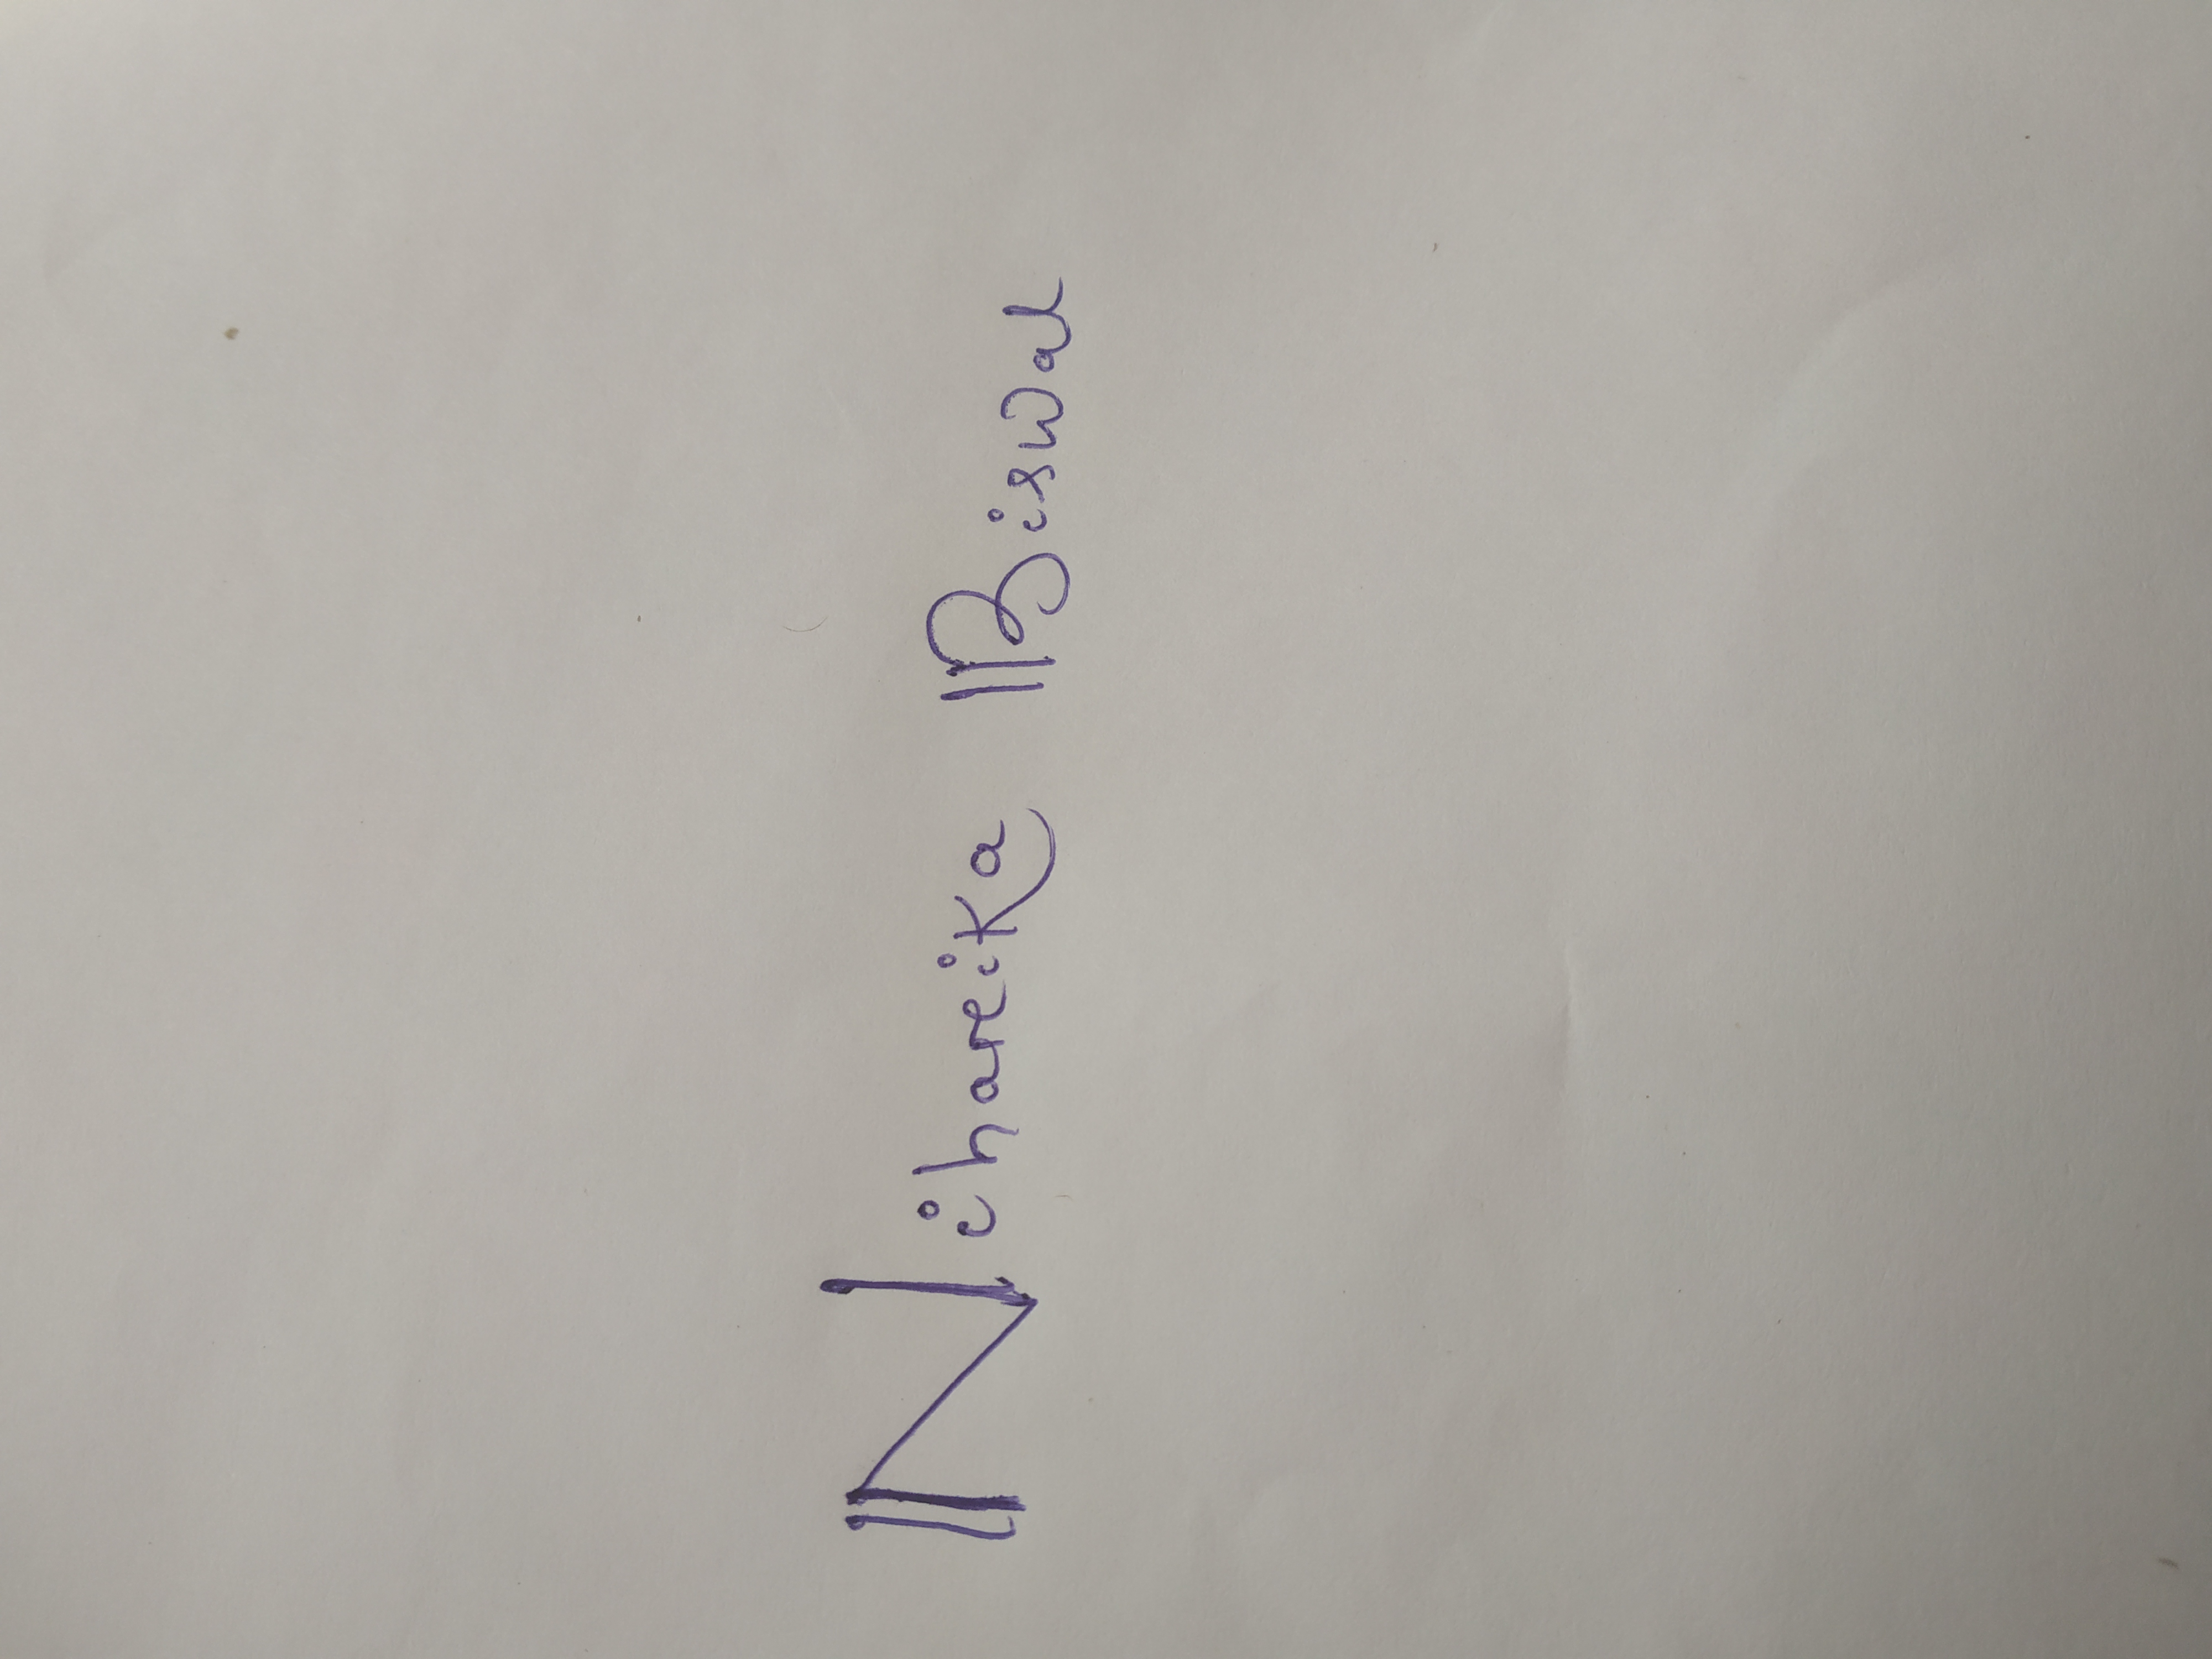 Nihareika Biswal